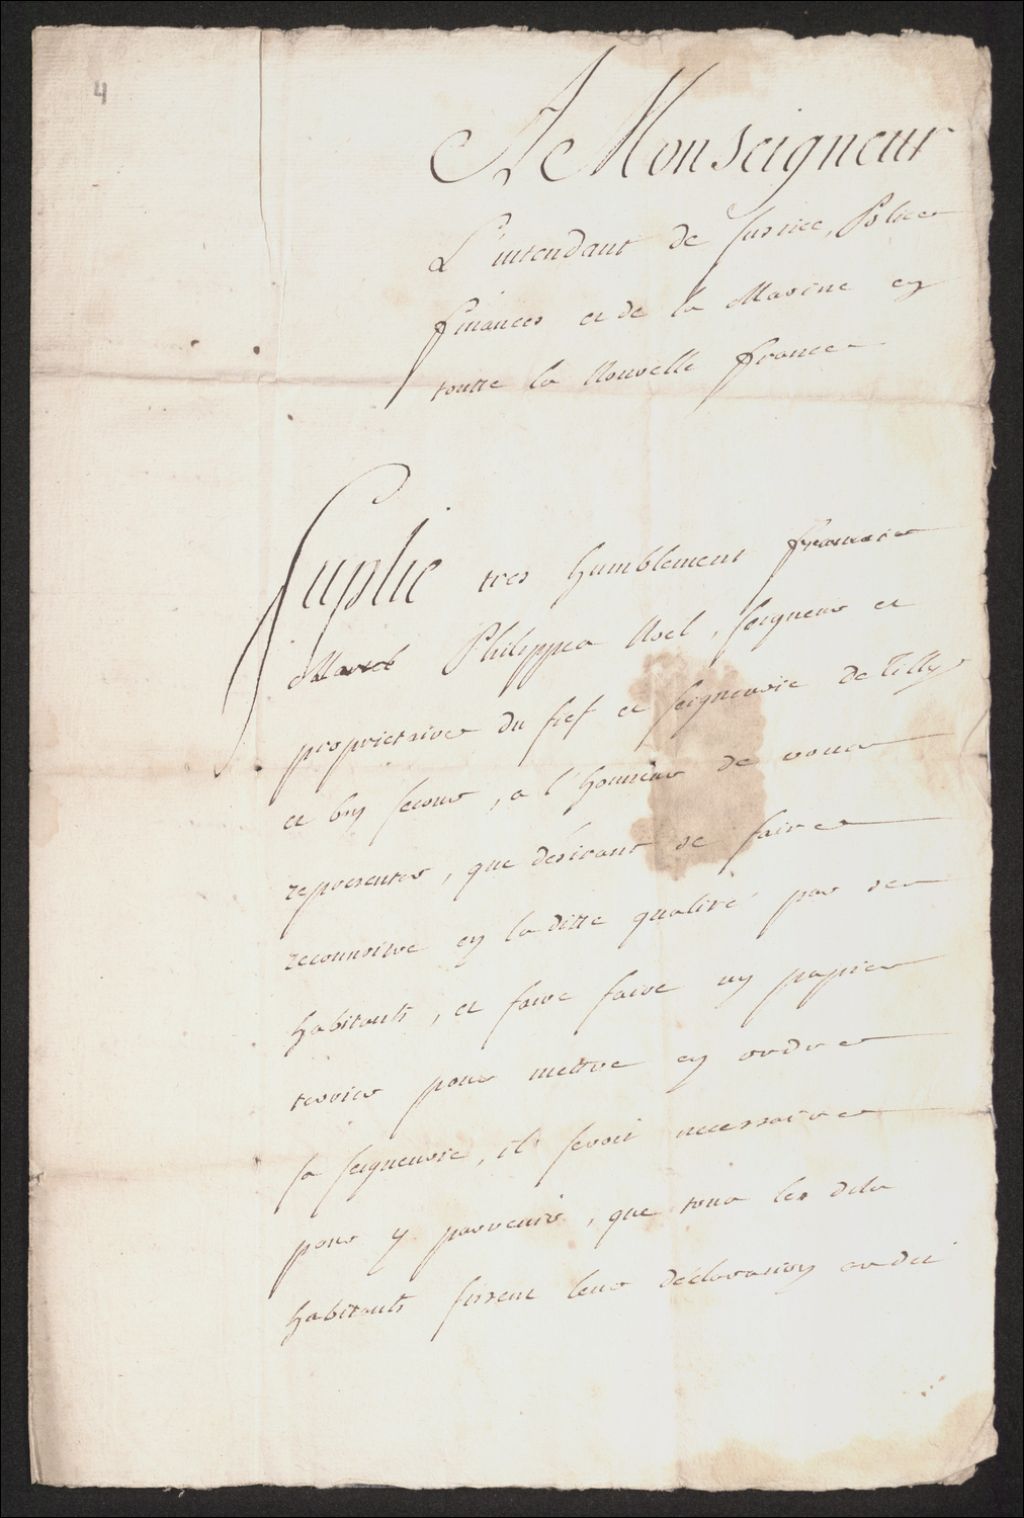 4
A Monseigneur
L'intendant de Justice, Police
finances et de la Marine en
toutte la Nouvelle france
Suplie tres humblement francois
Philippes Noel, seigneur et
proprietaire du fief et seigneurie de Tilly
et bon secour, a l'honneur de vous
representer, que désirant se faire
reconnoitre en la ditte qualité par ses
habitants, et faire faire un papier
terrier pour mettre en ordre
sa seigneurie, il seroit necessaire
pour y parvenir, que tous les dits
habitants fissent leur déclaration au dit